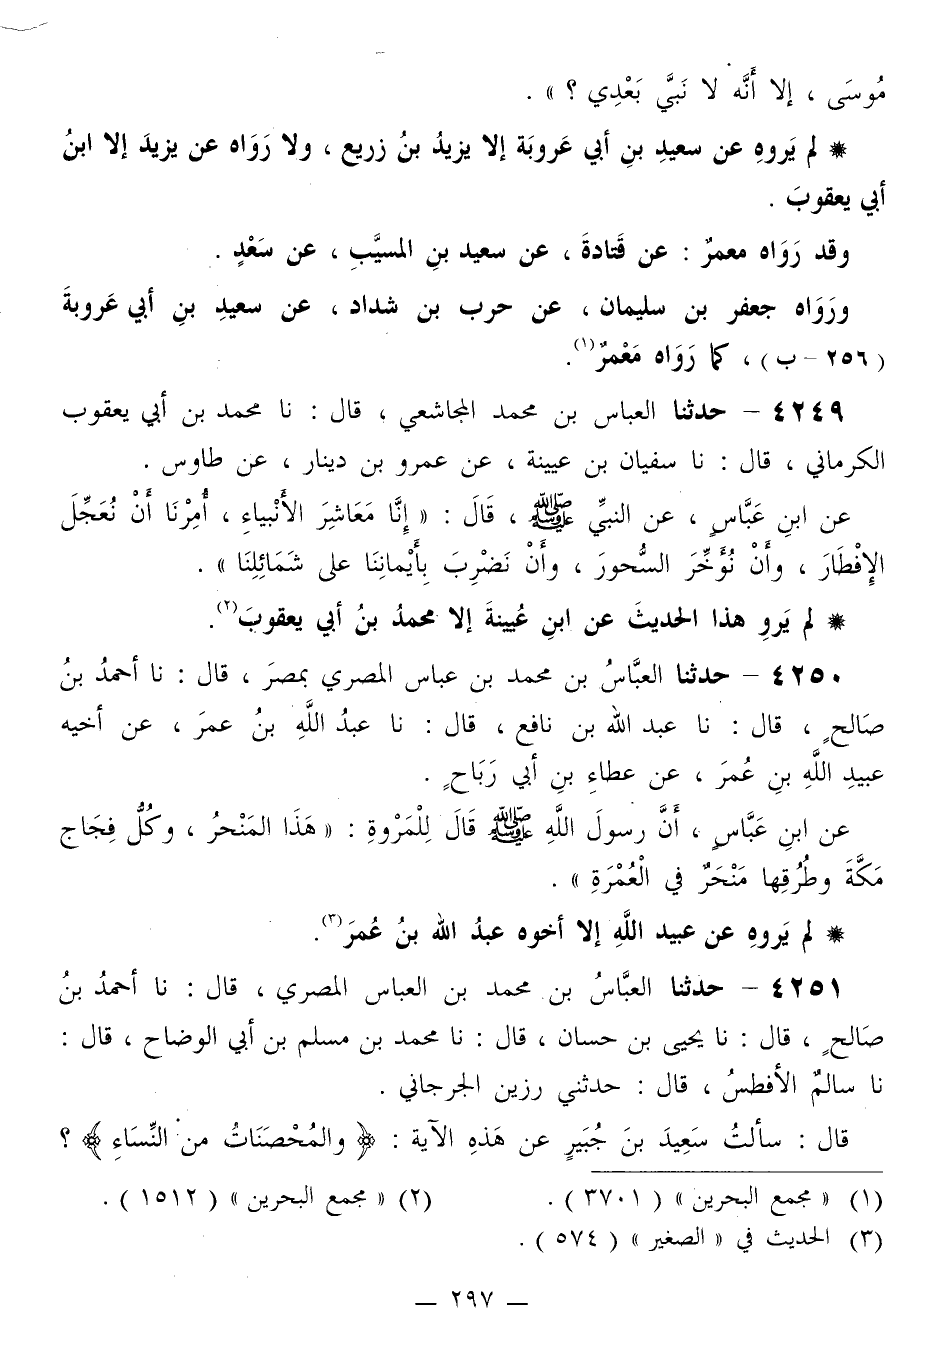 مُوسَى ، إلا أَنَّه لا نَبيَّ بَعْدِي ؟ » .
* لم يَروهِ عن سعيدِ بنِ أبي عَروبَة إلا يزيدُ بنُ زريع ، ولا رَوَاه عن يزيدَ إلا ابنُ
أبي يعقوبَ .
وقد رَوَاه معمرٌ : عن قَتادةَ ، عن سعيد بنِ المسيَّبِ ، عن سَعْدٍ .
ورَوَاه جعفر بن سليمان ، عن حرب بن شداد ، عن سعيدِ بنِ أبي عَروبةَ
( ٢٥٦ - ب ) ، كما رَوَاه مَعْمرٌ(١).
٤٢٤٩ - حدثنا العباس بن محمد المجاشعي ، قال : نا محمد بن أبي يعقوب
الكرماني ، قال : نا سفيان بن عيينة ، عن عمرو بن دينار ، عن طاوس .
عن ابنِ عَبَّاسٍ ، عن النبيِّ ﷺ ، قَالَ : « إنَّا مَعَاشِرَ الأَنْبياءِ ، أُمِرْنَا أَنْ نُعَجِّلَ
الإفْطَارَ ، وأَنْ نُؤَخِّرَ السُّحورَ ، وأَنْ نَضْرِبَ بِأَيْمانِنَا على شَمَائِلِنَا » .
* لم يَروِ هذا الحديثَ عن ابنِ عُيينةَ إلا محمدُ بنُ أبي يعقوبَ(٢).
٤٢٥٠ - حدثنا العبَّاسُ بن محمد بن عباس المصري بمصرَ ، قال : نا أحمدُ بنُ
صَالحٍ ، قال : نا عبد الله بن نافع ، قال : نا عبدُ اللَّهِ بنُ عمرَ ، عن أخيه
عبيدِ اللَّهِ بنِ عُمرَ ، عن عطاءِ بنِ أبي رَبَاحٍ .
عن ابنِ عَبَّاسٍ ، أَنَّ رسولَ اللَّهِ ﷺ قَالَ لِلْمَرْوةِ : « هَذَا المَنْحرُ ، وكُلُّ فِجَاج
مَكَّةَ وطُرُقِها مَنْحَرٌ في الْعُمْرَةِ » .
* لم يَروهِ عن عبيد اللَّهِ إلا أخوه عبدُ الله بنُ عُمرَ(٣).
٤٢٥١ - حدثنا العبَّاسُ بن محمد بن العباس المصري ، قال : نا أحمدُ بنُ
صَالحٍ ، قال : نا يحيى بن حسان ، قال : نا محمد بن مسلم بن أبي الوضاح ، قال :
نا سالمٌ الأفطسُ ، قال : حدثني رزين الجرجاني .
قال : سألتُ سَعِيدَ بنَ جُبَيرٍ عن هَذهِ الآية : ﴿ والمُحْصَنَاتُ من النِّسَاءِ ﴾ ؟
(١) « مجمع البحرين » ( ٣٧٠١ ) . (٢) « مجمع البحرين » ( ١٥١٢ ) .
(٣) الحديث في « الصغير » ( ٥٧٤ ) .
— ٢٩٧ —